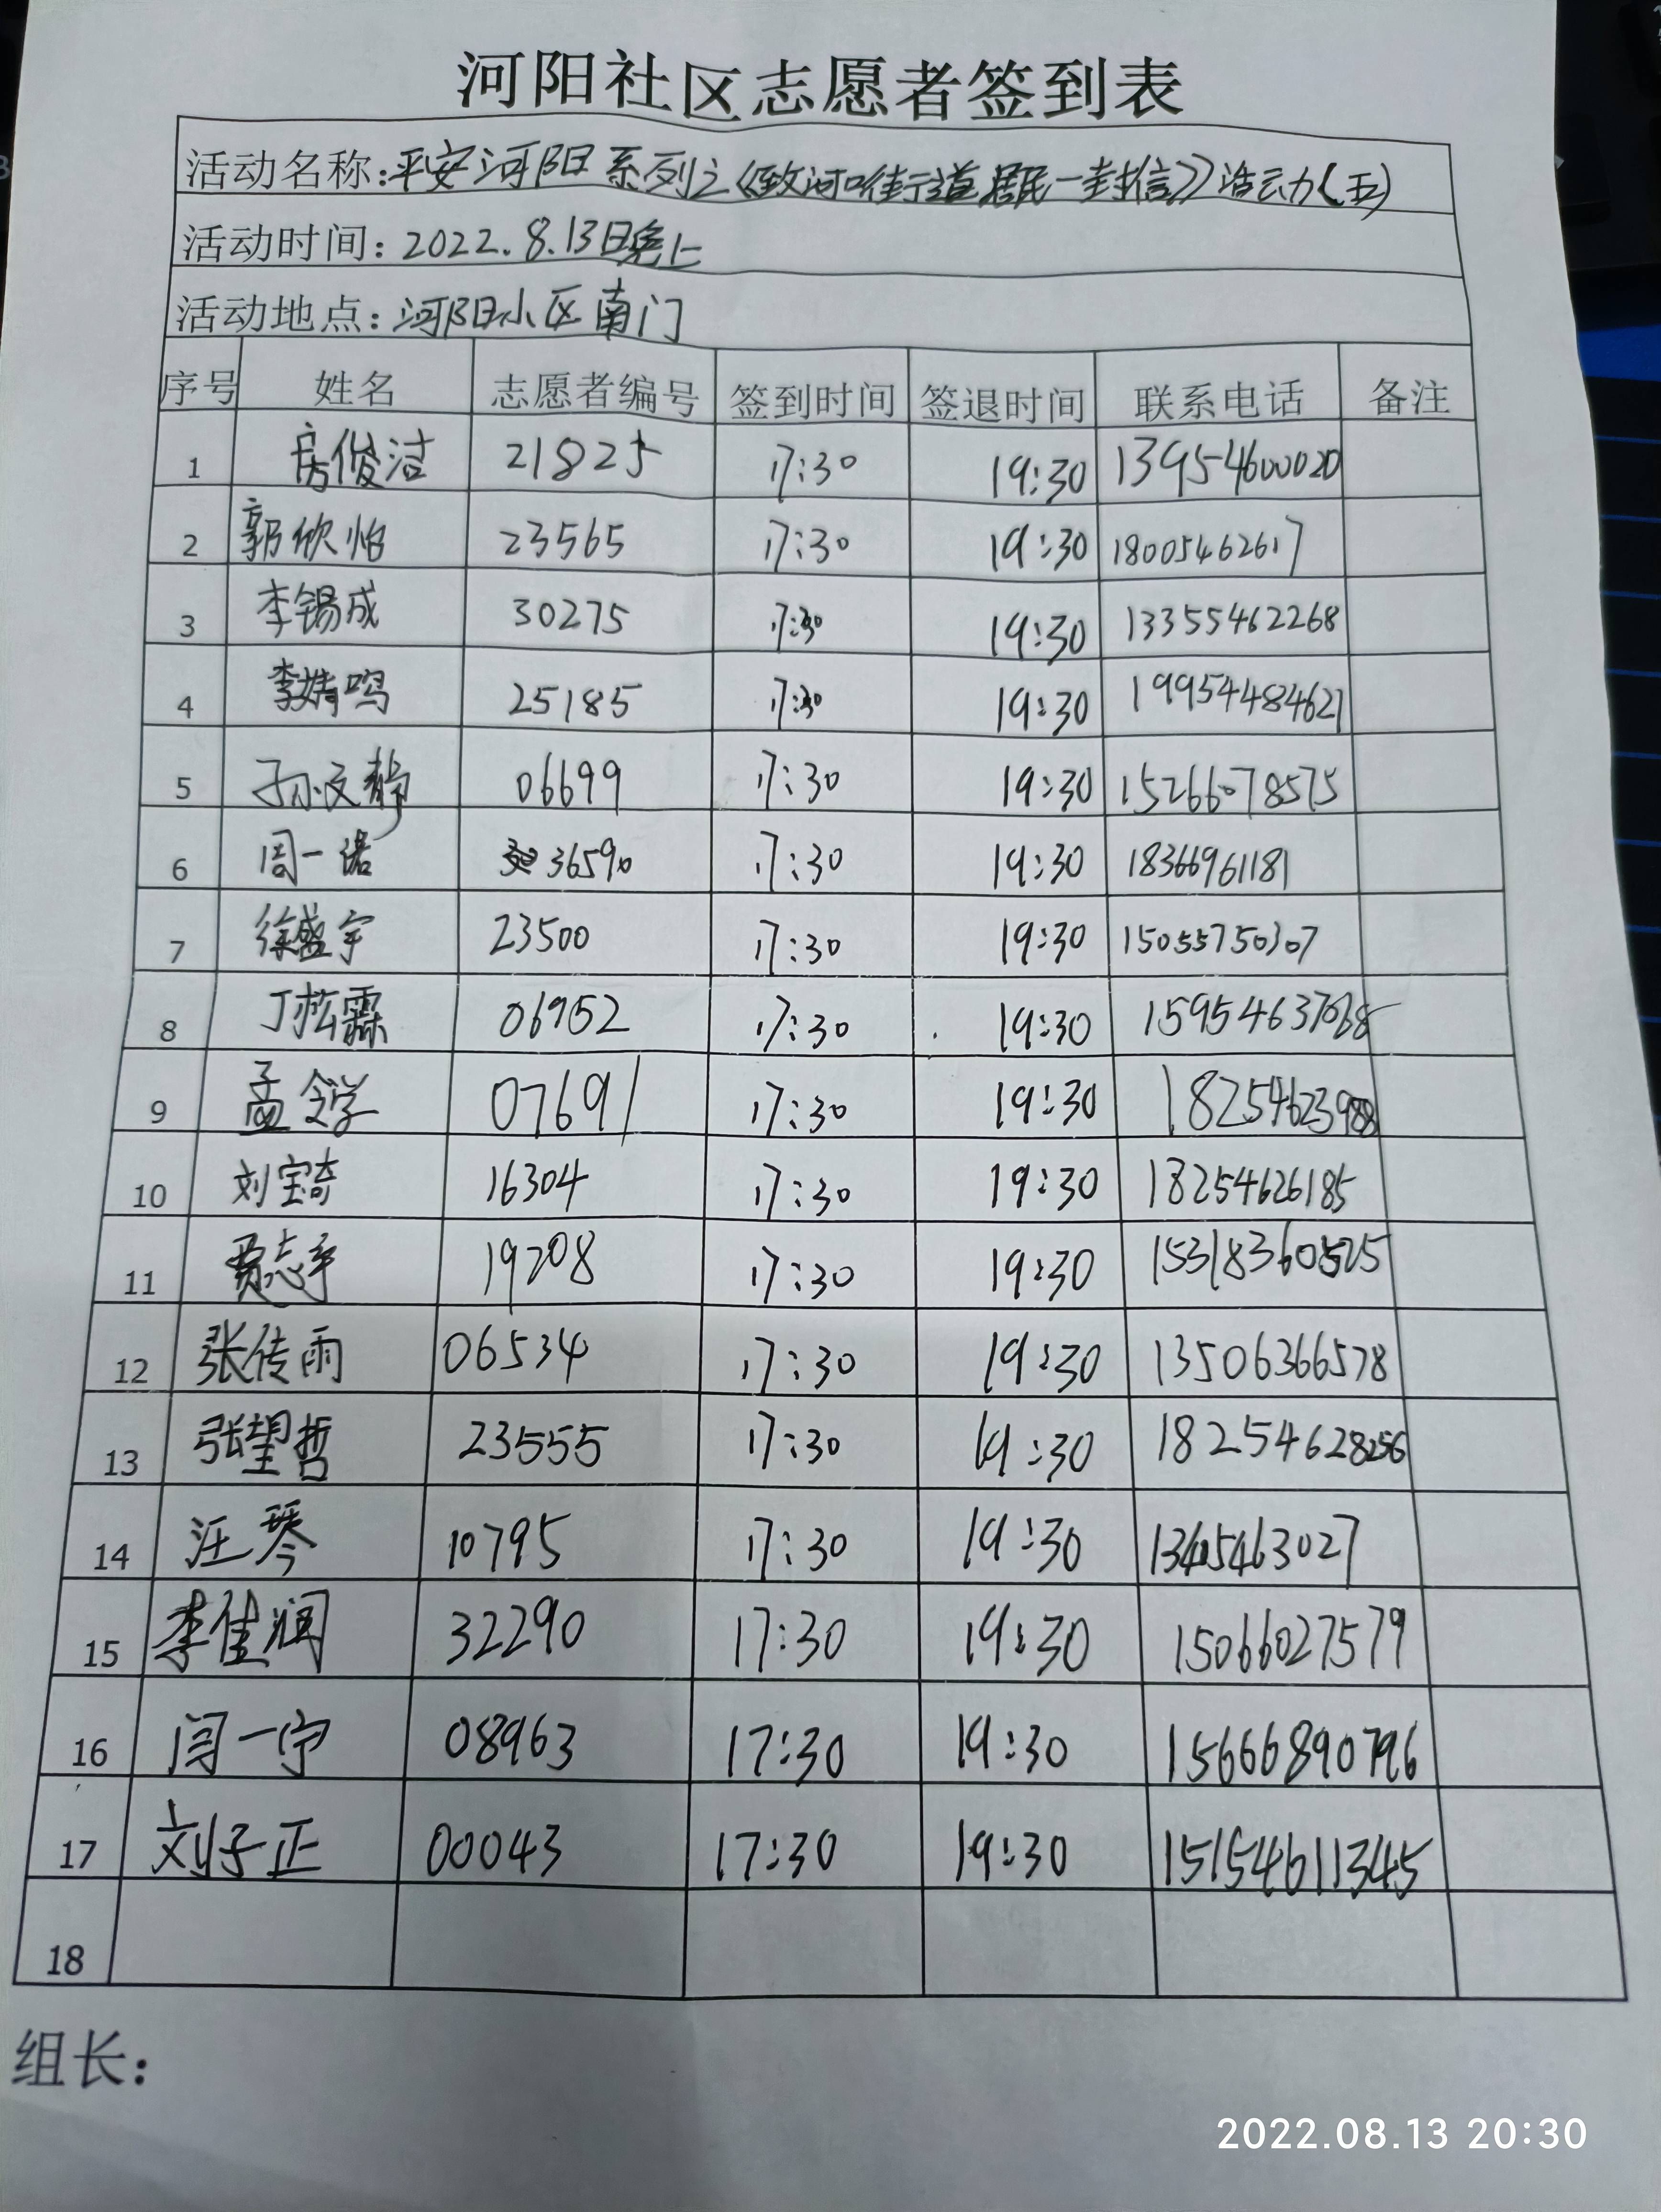 河阳社区志愿者签到表
活动名称:平安河阳系列之《致河口街道居民一封信》活动(五)
活动时间:2022.8.13日晚上
活动地点:河阳小区南门
序号 姓名 志愿者编号 签到时间 签退时间 联系电话 备注
1 房俊洁 21825 17:30 19:30 13954600020
2 郭欣怡 23565 17:30 19:30 18005462617
3 李锡成 30275 17:30 19:30 13355462268
4 李婧鸣 25185 17:30 19:30 19954484621
5 孙文静 06699 17:30 19:30 15266078575
6 周一诺 36590 17:30 19:30 18366961181
7 徐盛宇 23500 17:30 19:30 15055750307
8 丁松霖 06952 17:30 19:30 15954637068
9 孟令学 07691 17:30 19:30 18254623988
10 刘宝奇 16304 17:30 19:30 18254626185
11 贾志宇 19208 17:30 19:30 15318360525
12 张传雨 06534 17:30 19:30 13506366578
13 张望哲 23555 17:30 19:30 18254628256
14 汪琴 10795 17:30 19:30 13405463027
15 李佳润 32290 17:30 19:30 15066027579
16 闫一宁 08963 17:30 19:30 15666890796
17 刘子正 00043 17:30 19:30 15154611345
18
组长:
2022.08.13 20:30